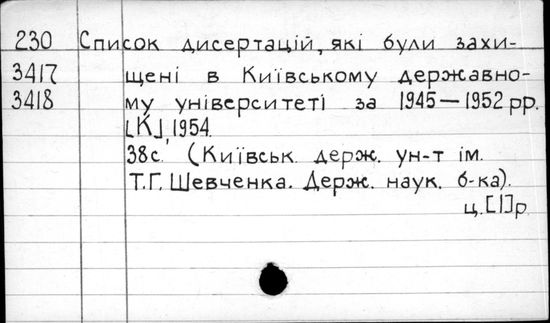 230 Список дисертацій, які були захи-
3417 щені в Київському державно-
3418 му університеті за 1945—1952 рр.
[К], 1954.
38с. (Київськ. держ. ун-т ім.
Т.Г. Шевченка. Держ. наук. б-ка).
ц. [1] р.